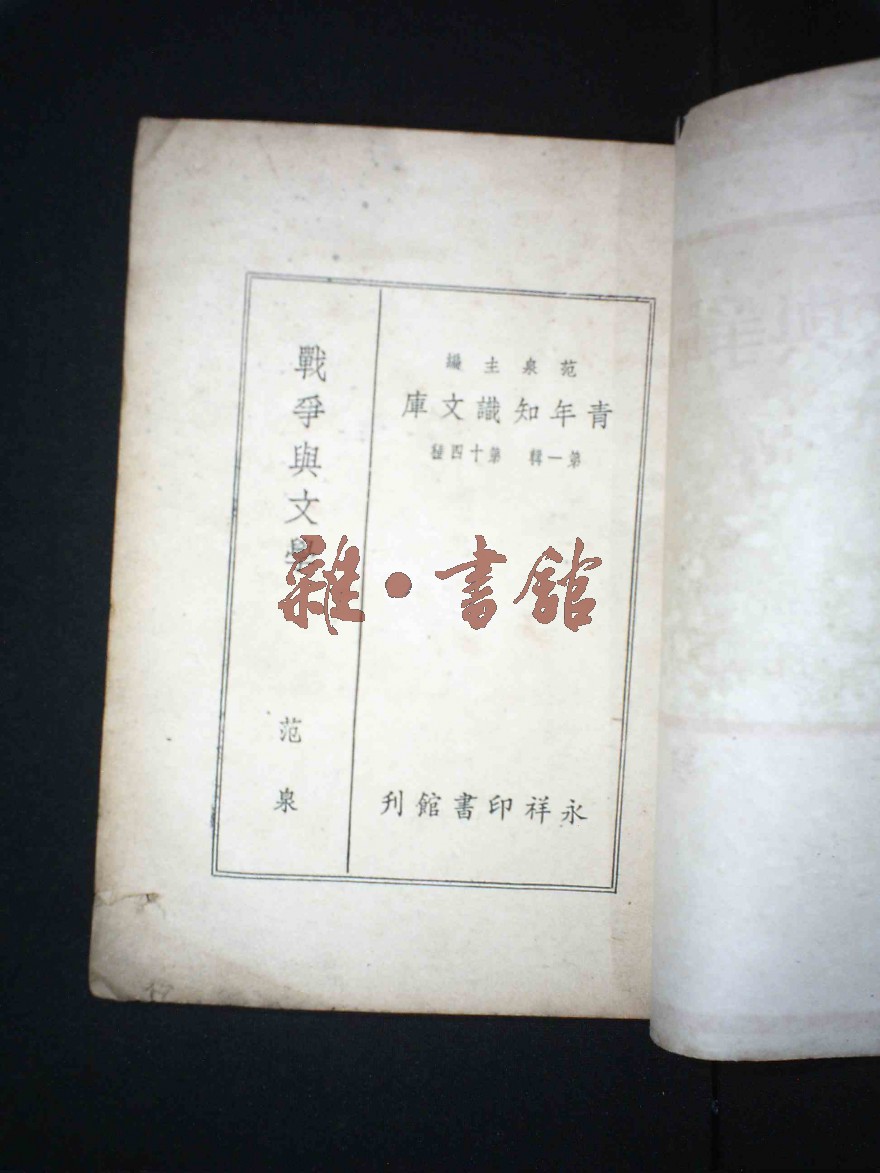 范泉主編
青年知識文庫
第一輯 第十四種
永祥印書館刊
戰爭與文學
范泉
雜·書館